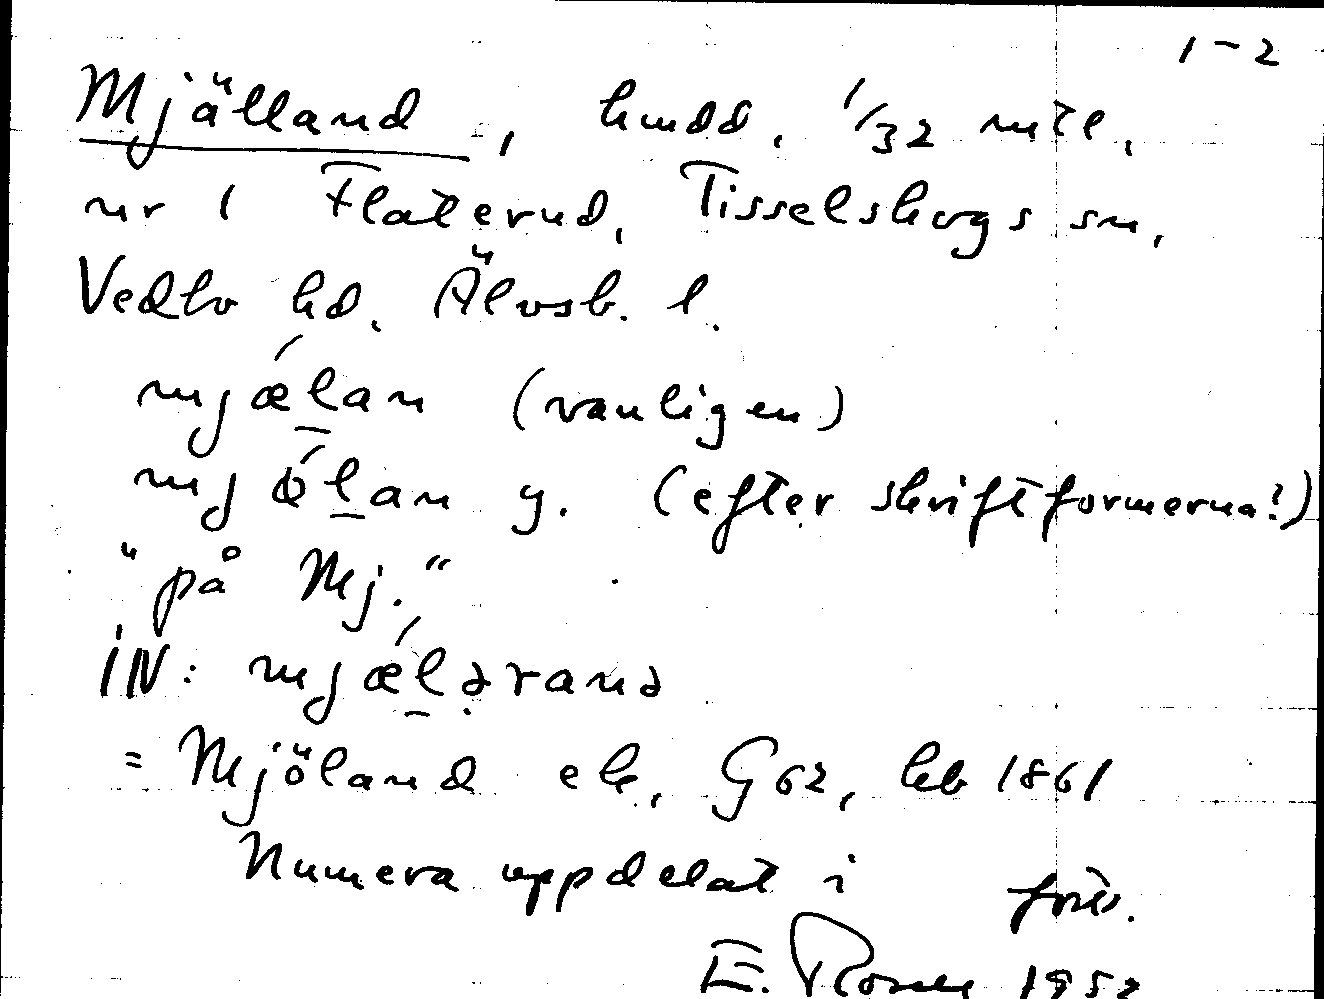 1-2
Mjälland, hmdd. 1/32 mtl.
nr 1 Flaterud, Tisselskogs sn,
Vedbo hd. Älvsb. l.
mjǽl̲an (vanligen)
mjǿl̲an y. (efter skriftformerna!)
"på Mj."
iN: mjǽl̲ə̣rana
= Mjöland ek, G62, kb 1861
Numera uppdelat i förv.
E. 1952